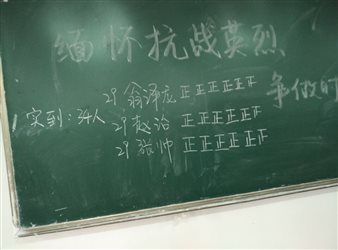 缅怀抗战英烈
争做时
实到:34人
29 翁泽应 正正正正正正
29 赵治 正正正正正正
29 张帅 正正正正正正